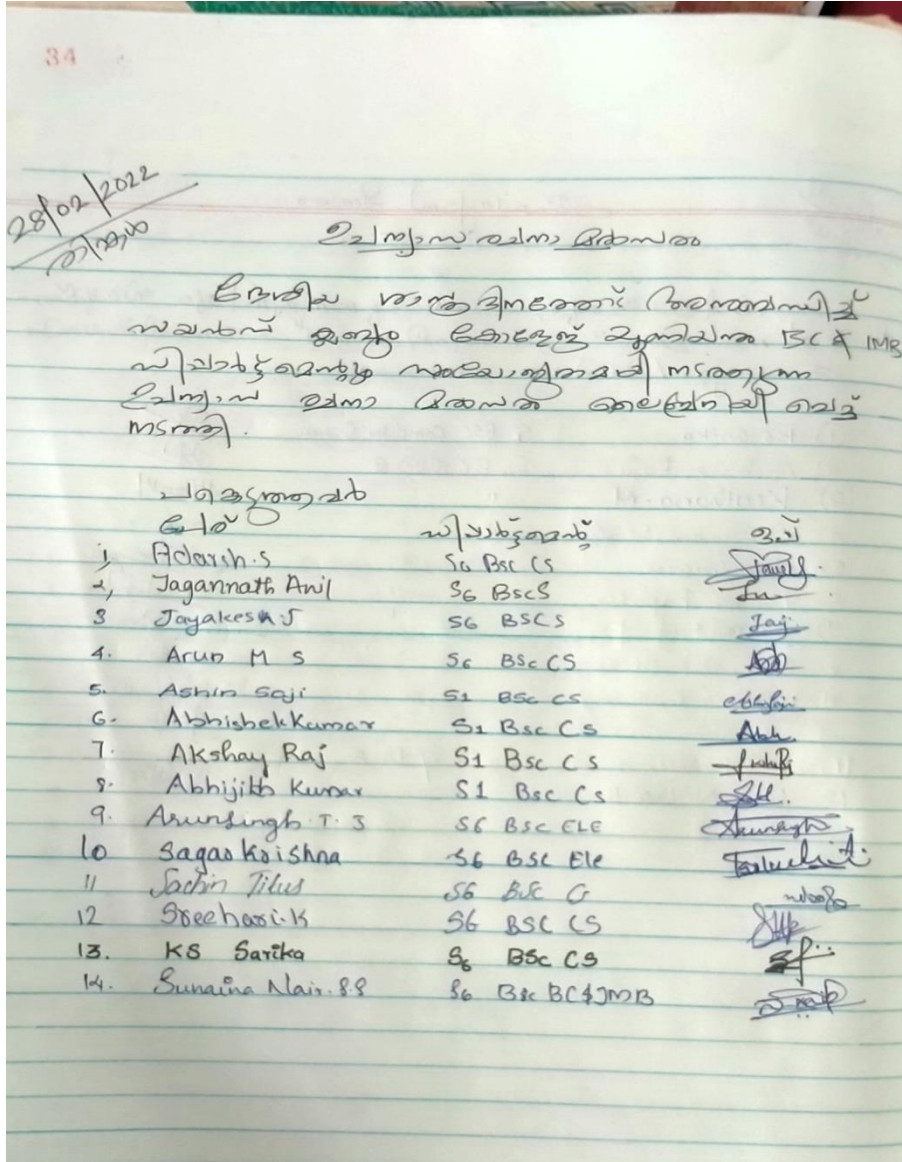 34
28/02/2022
തിങ്കൾ
ഉപന്യാസ രചനാ മത്സരം
ദേശീയ ശാസ്ത്ര ദിനത്തോട് അനുബന്ധിച്ച്
സയൻസ് ക്ലബ്ബും കോളേജ് യൂണിയനും BC & IMB
ഡിപ്പാർട്ട്മെന്റും സംയോജിതമായി നടത്തുന്ന
ഉപന്യാസ രചനാ മത്സരം ലൈബ്രറിയിൽ വെച്ച്
നടത്തി.
പങ്കെടുത്തവർ
പേര് ഡിപ്പാർട്ട്മെന്റ് ഒപ്പ്
1, Adarsh.S S6 Bsc CS
2, Jagannath Anil S6 BscS
3 Jayakesh J S6 BSCS Jaj
4. Arun M S S6 BSc CS
5. Ashin Saji S1 BSc CS
6. Abhishek Kumar S1 Bsc CS Abh.
7. Akshay Raj S1 Bsc CS
8. Abhijith Kumar S1 Bsc Cs
9. Arunsingh.T.J S6 BSC ELE
10 Sagar Krishna S6 BSC Ele
11 Sachin Titus S6 BSc
12 Sreehari.K S6 BSC CS
13. KS Sarika S6 BSc CS
14. Sunaina Nair.S.S S6 Bsc BC&IMB